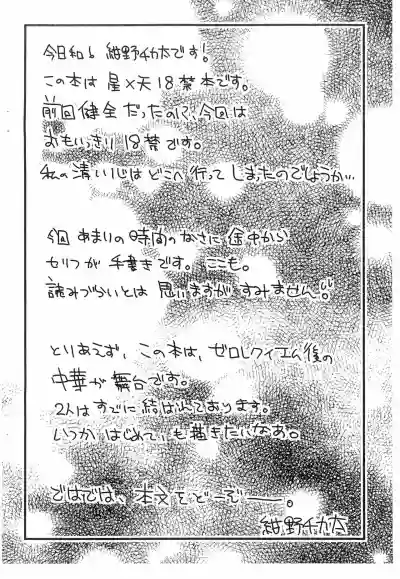 今日和。紺野チカ太です!
この本は 星×天18禁本です。
前回健全だったのに、今回は
おもいっきり18禁です。
私の清い心はどこへ行ってしまったのでしょうか…
今回あまりの時間のなさに途中から
セリフが手書きです。ここも。
読みづらいとは思いますがすみません。
とりあえず、この本は、ゼロレクイエム後の
中華が舞台です。
2人はすでに結ばれております。
いつか はじめて、も描きたいなあ。
ではでは、本文をどーぞ――。
紺野チカ太